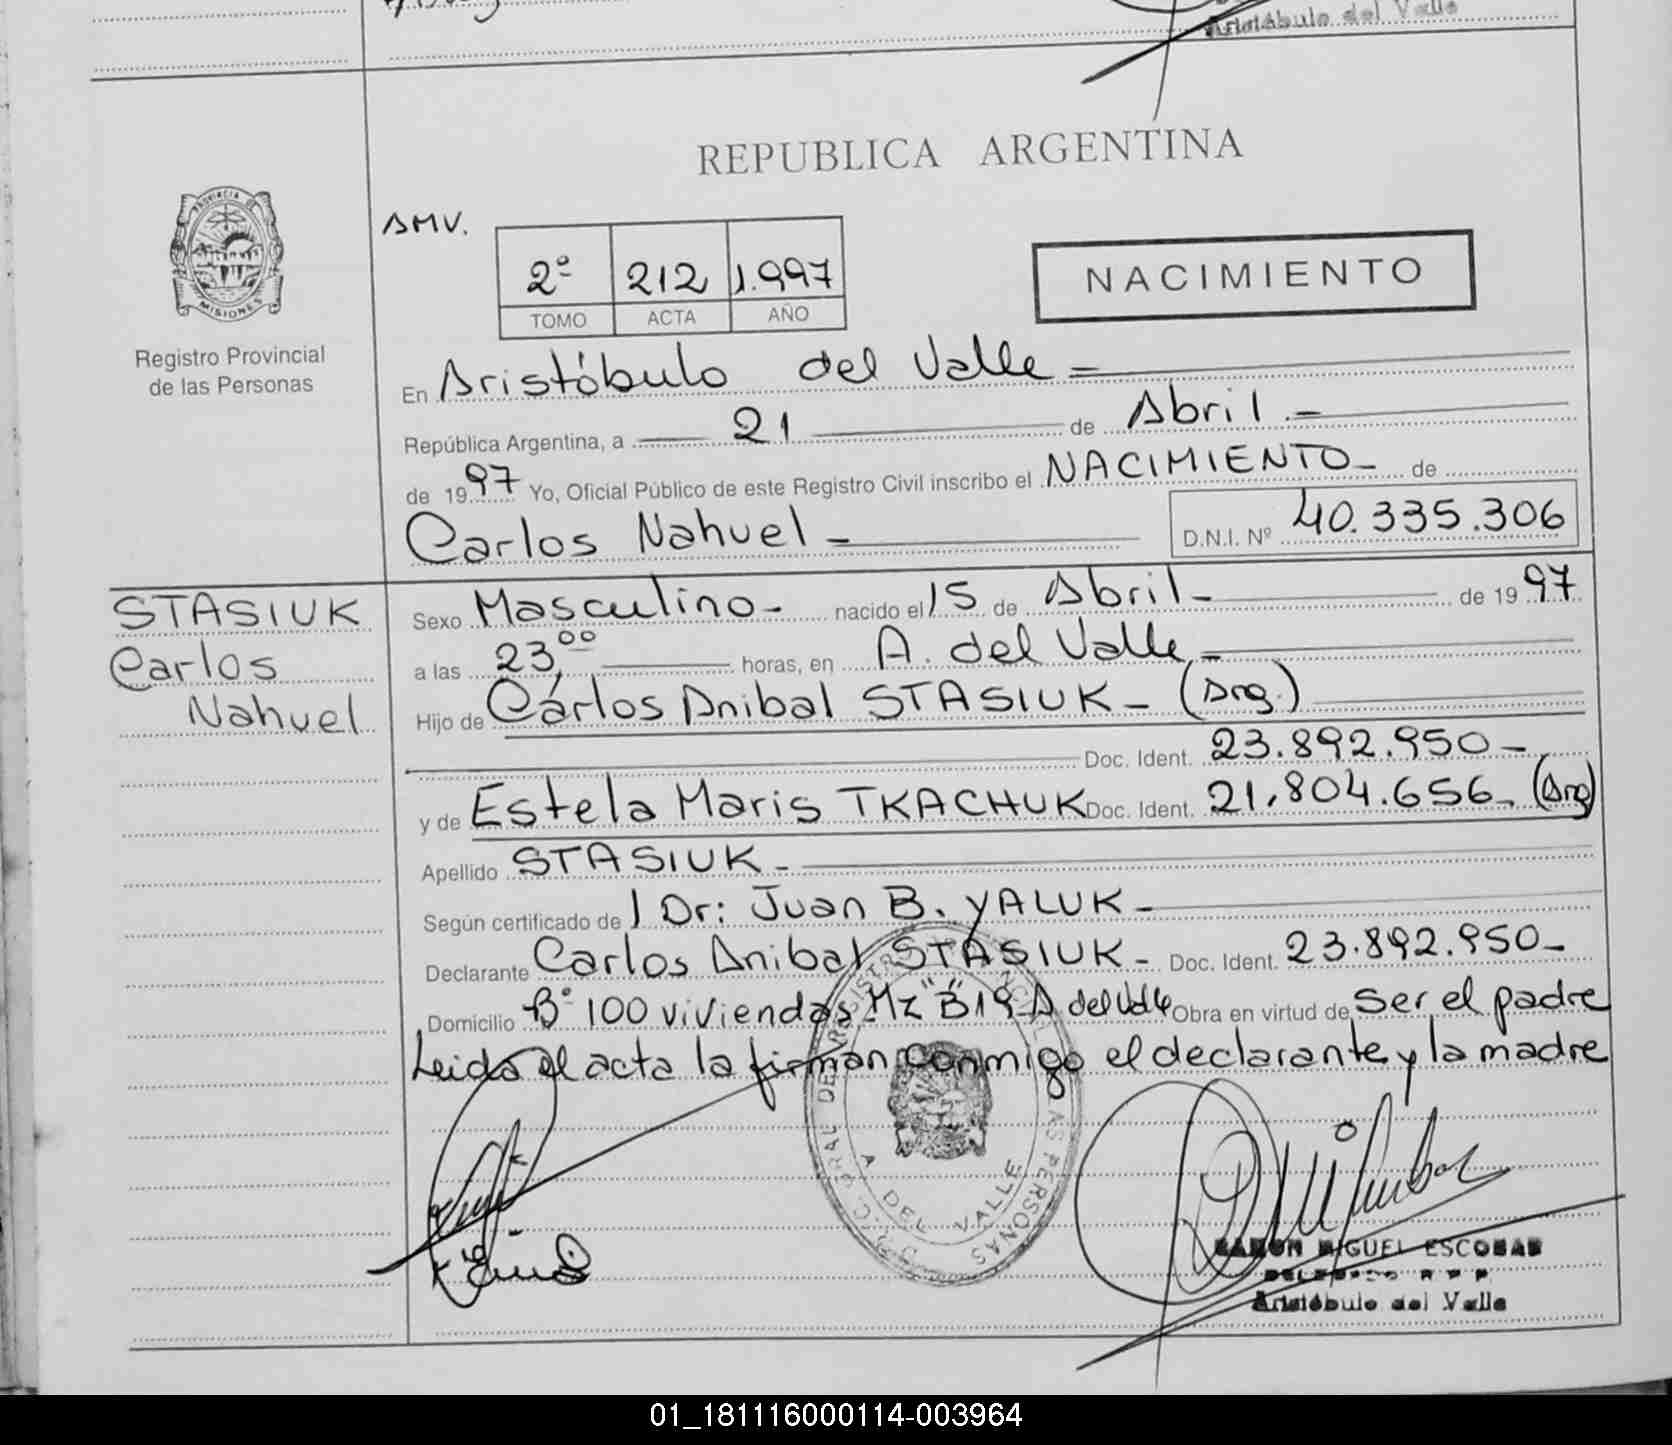 Aristóbulo del Valle
REPUBLICA ARGENTINA
PROVINCIA DE
MISIONES
Registro Provincial
de las Personas
AMV.
2º 212 1.997
TOMO ACTA AÑO
NACIMIENTO
En Aristóbulo del Valle =
República Argentina, a 21 de Abril.-
de 1997 Yo, Oficial Público de este Registro Civil inscribo el NACIMIENTO- de
Carlos Nahuel - D.N.I. Nº 40.335.306
STASIUK
Carlos
Nahuel
Sexo Masculino- nacido el 15 de Abril- de 1997
a las 23,00 horas, en A. del Valle-
Hijo de Carlos Anibal STASIUK- (Arg.)
Doc. Ident. 23.892.950-
y de Estela Maris TKACHUK Doc. Ident. 21.804.656- (Arg)
Apellido STASIUK-
Según certificado de / Dr: Juan B. YALUK-
Declarante Carlos Anibal STASIUK- Doc. Ident. 23.892.950-
Domicilio Bº 100 viviendas Mz "B" 19 A del Valle Obra en virtud de Ser el padre
Leida el acta la firman conmigo el declarante y la madre
A DEL VALLE
PERSONAS
RAMON MIGUEL ESCOBAR
DELEGADO R P P
Aristóbulo del Valle
01_181116000114-003964